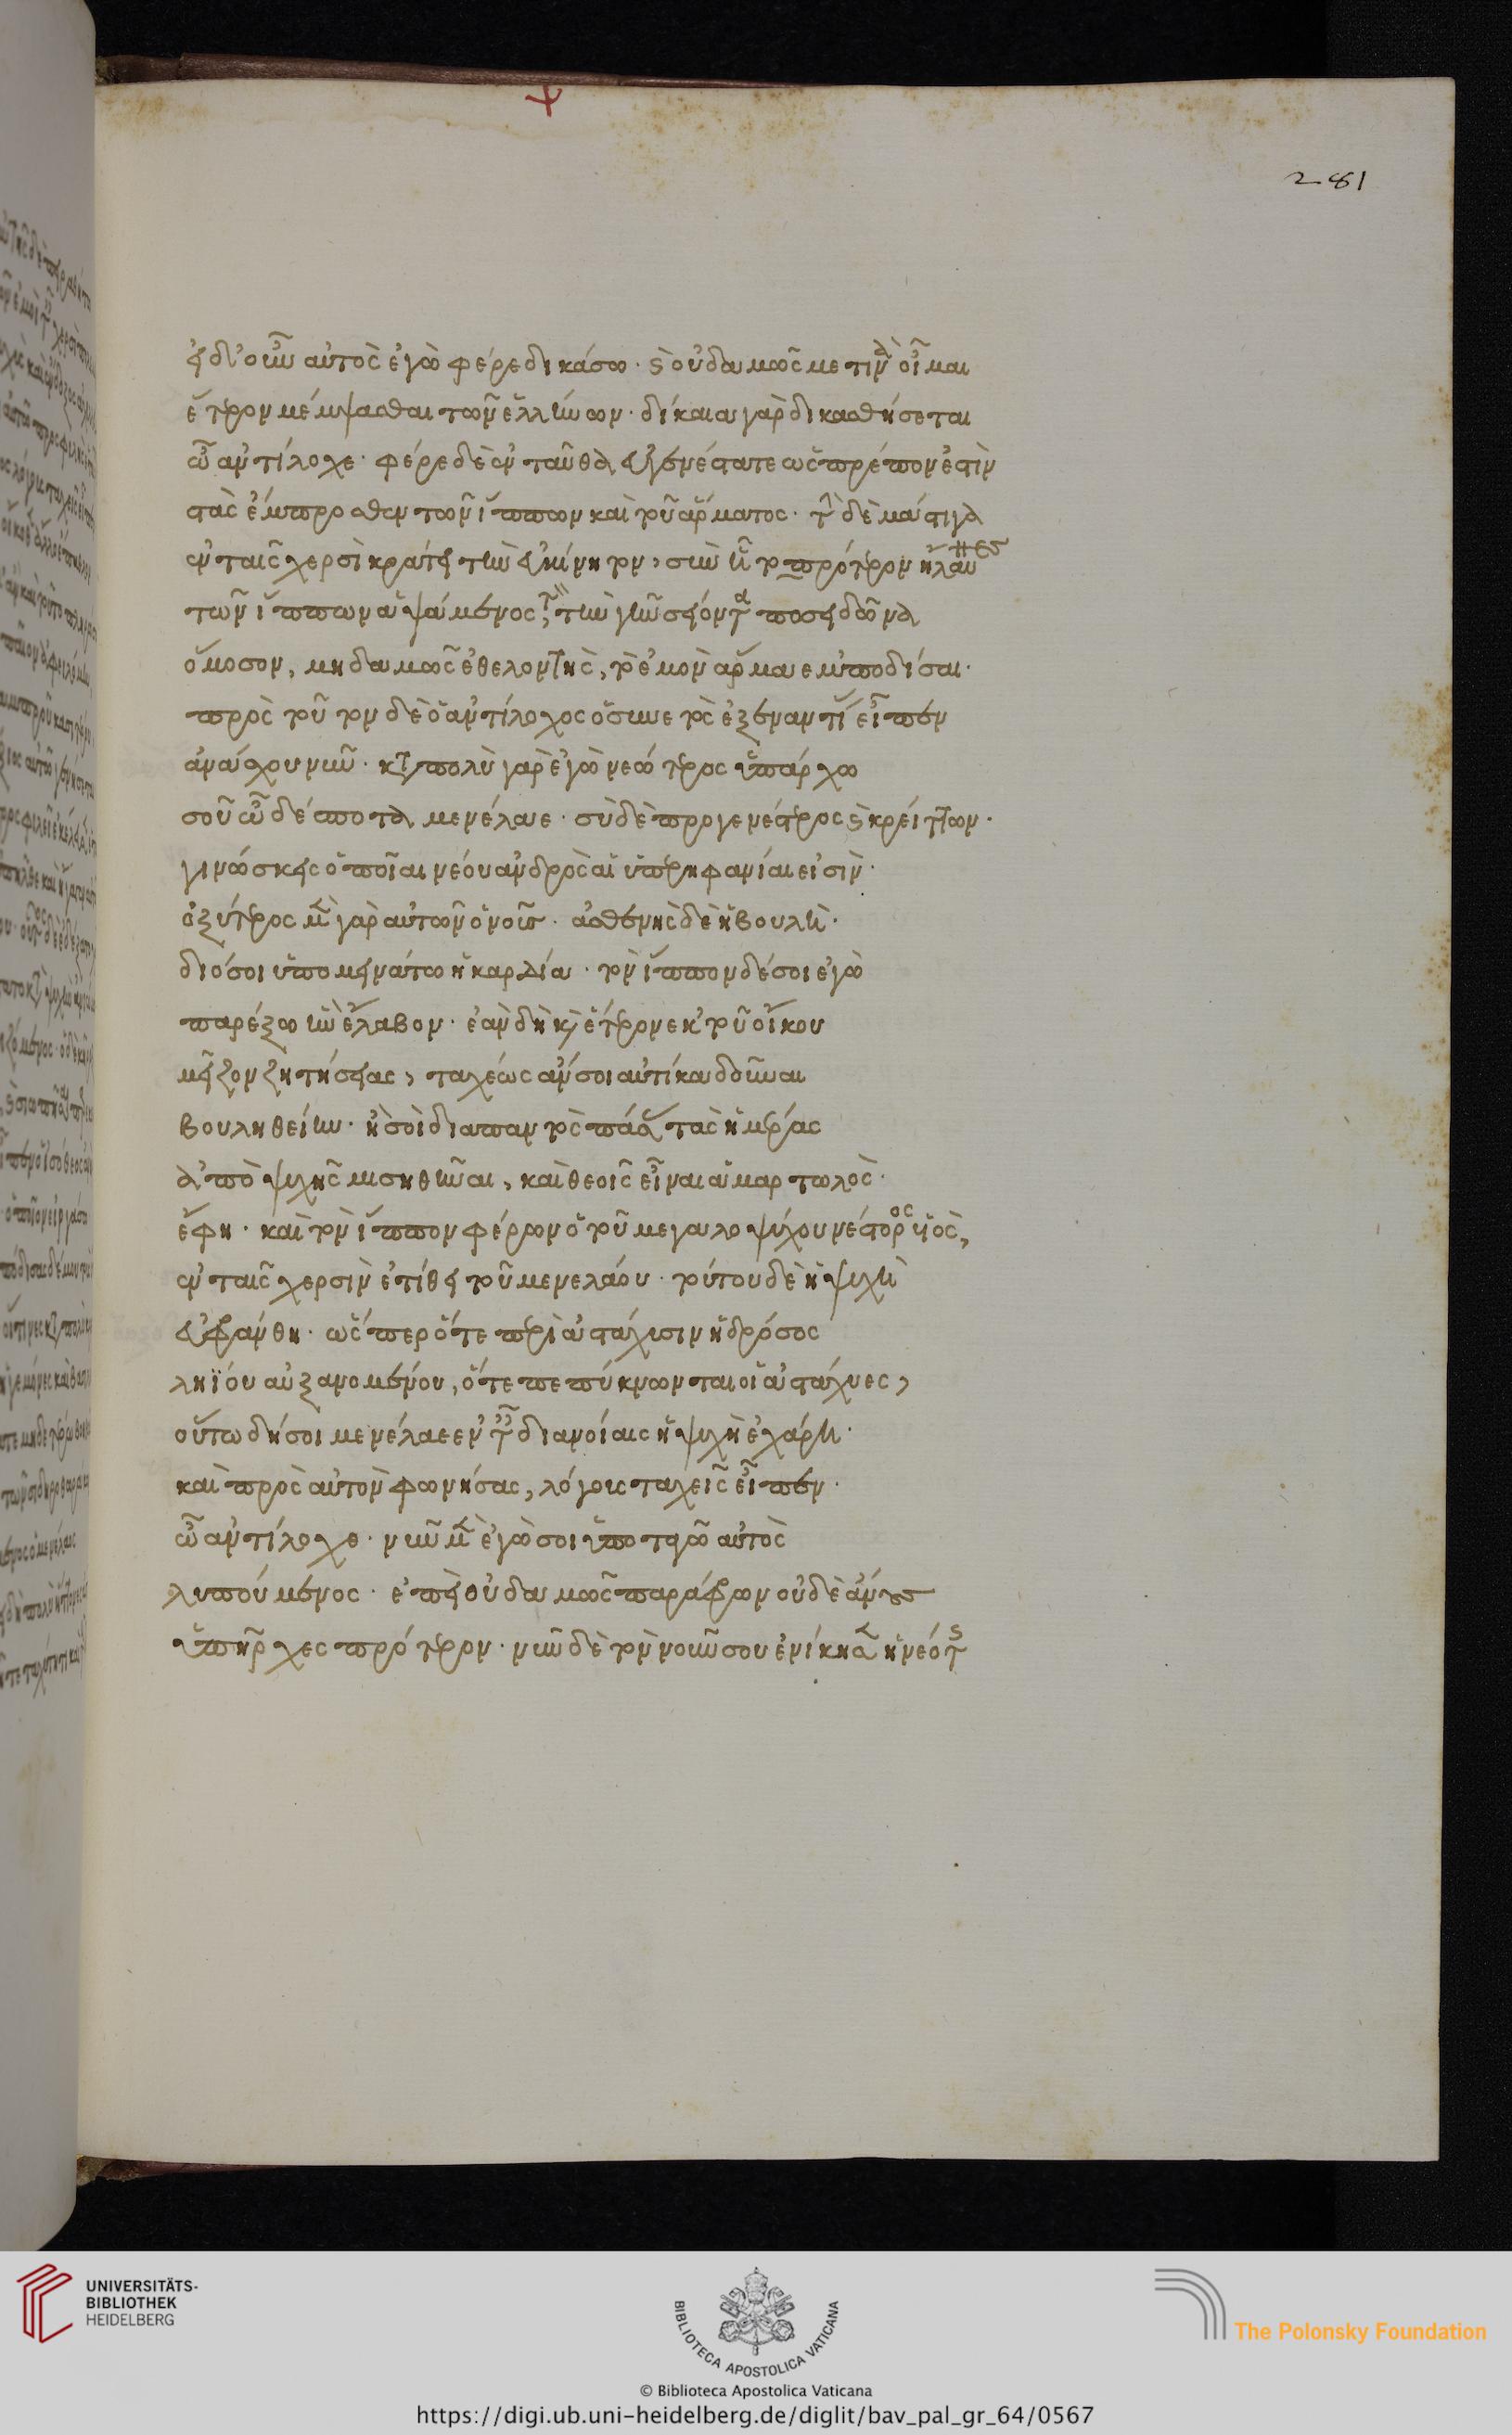 281
εἰ δ' οὖν αὐτὸς ἐγὼ φέρε δικάσω· καὶ οὐδαμῶς με τινὰ οἶμαι
ἕτερον μέμψασθαι τῶν ἑλλήνων· δίκαια γὰρ δικασθήσεται
ὦ ἀντίλοχε· φέρε δὲ ἐνταῦθα εὐγενέστατε ὡς πρέπον ἐστὶν
στὰς ἔμπροσθεν τῶν ἵππων καὶ τοῦ ἅρματος· τὴν δὲ μάστιγα
ἐν ταῖς χερσὶ κράτει τὴν εὐκίνητον, σὺν ᾗ τοπρότερον ἤλαυνες
τῶν ἵππων ἁψάμενος τὸν τὴν γῆν σείοντα ποσειδῶνα
ὄμοσον, μηδαμῶς ἐθελοντὴς, τὸ ἐμὸν ἅρμα εμποδίσαι·
πρὸς τοῦτον δὲ ὁ ἀντίλοχος ὁ συνετὸς ἐξεναντί εἶπεν
ἀνάσχου νῦν· κατὰ πολὺ γὰρ ἐγὼ νεώτερος ὑπάρχω
σοῦ ὦ δέσποτα μενέλαε· σὺ δὲ προγενέστερος καὶ κρείττων·
γινώσκεις ὁποῖαι νέου ἀνδρὸς αἱ ὑπερηφανίαι εἰσὶν·
ὀξύτερος μὲν γὰρ αὐτῶν ὁ νοῦς· ἀσθενὴς δὲ ἡ βουλὴ·
διό σοι ὑπομεινάτω ἡ καρδία· τὸν ἵππον δέ σοι ἐγὼ
παρέξω ὃν ἔλαβον· ἐὰν δὴ καὶ ἕτερον εκ τοῦ οἴκου
μεῖζον ζητήσειας, ταχέως ἄν σοι αὐτίκα δοῦναι
βουληθείην· ἢ σοὶ διαπαντὸς πάσας τὰς ἡμέρας
ἀπὸ ψυχῆς μισηθῆναι, καὶ θεοῖς εἶναι ἁμαρτωλὸς·
ἔφη· καὶ τὸν ἵππον φέρων ὁ τοῦ μεγαλοψύχου νέστορος υἱὸς,
ἐν ταῖς χερσὶν ἐτίθει τοῦ μενελάου· τούτου δὲ ἡ ψυχὴ
εὐφράνθη· ὥσπερ ὅτε περὶ ἀστάχυσιν ἡ δρόσος
ληΐου αὐξανομένου, ὅτε πεπύκνωνται οἱ ἀστάχυες,
οὕτω δή σοι μενέλαε εν ταῖς διανοίαις ἡ ψυχὴ ἐχάρη·
καὶ πρὸς αὐτὸν φωνήσας, λόγοις ταχεῖς εἶπεν·
ὦ ἀντίλοχε· νῦν μὲν ἐγώ σοι ὑποταγῶ αὐτὸς
λυπούμενος· ἐπεὶ οὐδαμῶς παράφρων οὐδὲ ἄνους
ὑπῆρχες πρότερον· νῦν δὲ τὸν νοῦν σου ἐνίκησεν ἡ νεότης
UNIVERSITÄTS-
BIBLIOTHEK
HEIDELBERG
BIBLIOTECA APOSTOLICA VATICANA
The Polonsky Foundation
© Biblioteca Apostolica Vaticana
https://digi.ub.uni-heidelberg.de/diglit/bav_pal_gr_64/0567